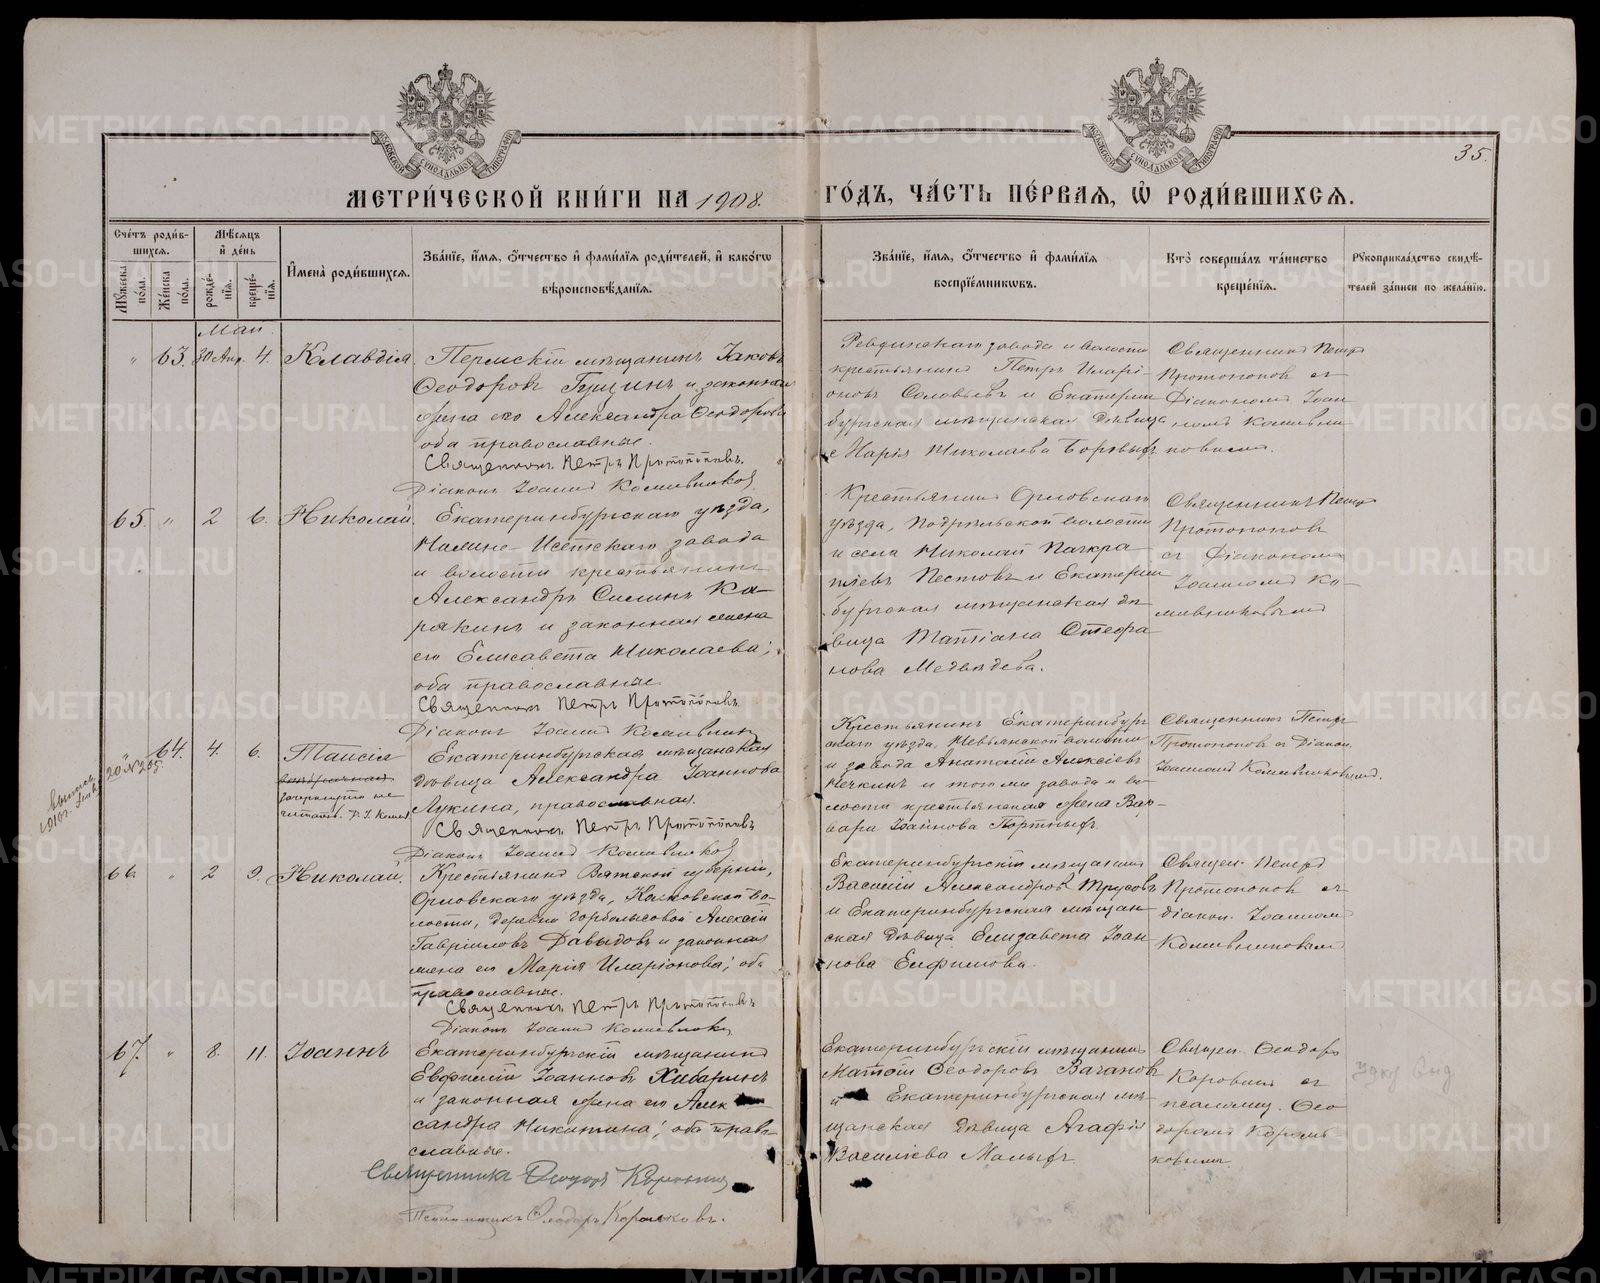 МОСКОВСКОЙ СѴНОДАЛЬНОЙ ТИПОГРАФІИ
МОСКОВСКОЙ СѴНОДАЛЬНОЙ ТИПОГРАФІИ
35.
МЕТРИ́ЧЕСКОЙ КНИ́ГИ НА 1908. ГО́ДЪ, ЧА́СТЬ ПЕ́РВАЯ, Ѡ҆ РОДИ́ВШИХСЯ.
Сче́тъ роди́в-
шихся.
Му́жеска по́ла.
Же́нска по́ла.
Мѣ́сяцъ
и҆ де́нь
рожде́-
нїя.
креще́-
нїя.
И҆мена̀ роди́вшихся.
Зва́нїе, и҆́мя, ѻ҆́тчество и҆ фами́лїя роди́телей, и҆ како́гѡ
вѣроисповѣ́данїя.
Зва́нїе, и҆́мя, ѻ҆́тчество и҆ фами́лїя
воспрїе́мникѡвъ.
Кто̀ соверша́лъ та́инство
креще́нїя.
Рꙋкоприкла́дство свидѣ́-
телей за́писи по жела́нїю.
Маи
" 63. 30 Апр. 4. Клавдія
Пермскій мѣщанинъ Іаковъ
Ѳеодоровъ Гущинъ и законная
жена его Александра Ѳеодорова
оба православные.
Священникъ Петръ Протопоповъ.
Діаконъ Іоаннъ
Ревдинскаго завода и волости
крестьянинъ Петръ Иларі-
оновъ Соловьевъ и Екатерин
бургская мѣщанская дѣвица
Марія Николаева Боровыхъ
Священникъ Петръ
Протопоповъ съ
Діакономъ Іоан
номъ
65. " 2 6. Николай.
Екатеринбургскаго уѣзда,
Нижне-Исетскаго завода
и волости крестьянинъ
Александръ Силинъ Ка-
рякинъ и законная жена
его Елисавета Николаева;
оба православные
Священникъ Петръ Протопоповъ.
Діаконъ Іоаннъ
Крестьянинъ Орловскаго
уѣзда, волости
и села Николай Панкра-
тьевъ Пестовъ и Екатерин
бургская мѣщанская дѣ-
вица Татіана Стефа
нова Медвѣдева.
Священникъ Петръ
Протопоповъ
съ Діакономъ
Іоанномъ
" 64. 4. 6. Таисія
зачеркнуто не
читать.
Екатеринбургская мѣщанская
дѣвица Александра Іоаннова
Лукина, православная.
Священникъ Петръ Протопоповъ
Діаконъ Іоаннъ
Крестьянинъ Екатеринбург
скаго уѣзда, Невьянской волости
и завода Анатолій Алексѣевъ
и того же завода и во-
лости крестьянская жена Вар-
вара Іоаннова Портныхъ.
Священникъ Петръ
Протопоповъ съ Діакон.
Іоанномъ
66. " 2 9. Николай.
Крестьянинъ Вятской губерніи,
Орловскаго уѣзда, во-
лости, деревни Алексѣй
Гавріиловъ Давыдовъ и законная
жена его Марія Иларіонова; оба
православные.
Священникъ Петръ Протопоповъ
Діаконъ Іоаннъ
Екатеринбургскій мѣщанинъ
Василій Александровъ Трусовъ
и Екатеринбургская мѣщан-
ская дѣвица Елизавета Іоан-
нова Ефимова.
Священ. Петръ
Протопоповъ съ
діакон. Іоанномъ
67. " 8. 11. Іоаннъ
Екатеринбургскій мѣщанинъ
Евфимій Іоанновъ Хибаринъ
и законная жена его Алек
сандра Никитина; оба право-
славные.
Священникъ Ѳеодоръ Коровинъ
Псаломщикъ Ѳеодоръ Коротковъ.
Екатеринбургскій мѣщанинъ
Матѳій Ѳеодоровъ Вачановъ
и Екатеринбургская мѣ-
щанская дѣвица Агафія
Василіева Малыхъ
Священ. Ѳеодоръ
Коровинъ съ
псаломщ. Ѳео-
доромъ Корот-
ковымъ.
METRIKI.GASO-URAL.RU